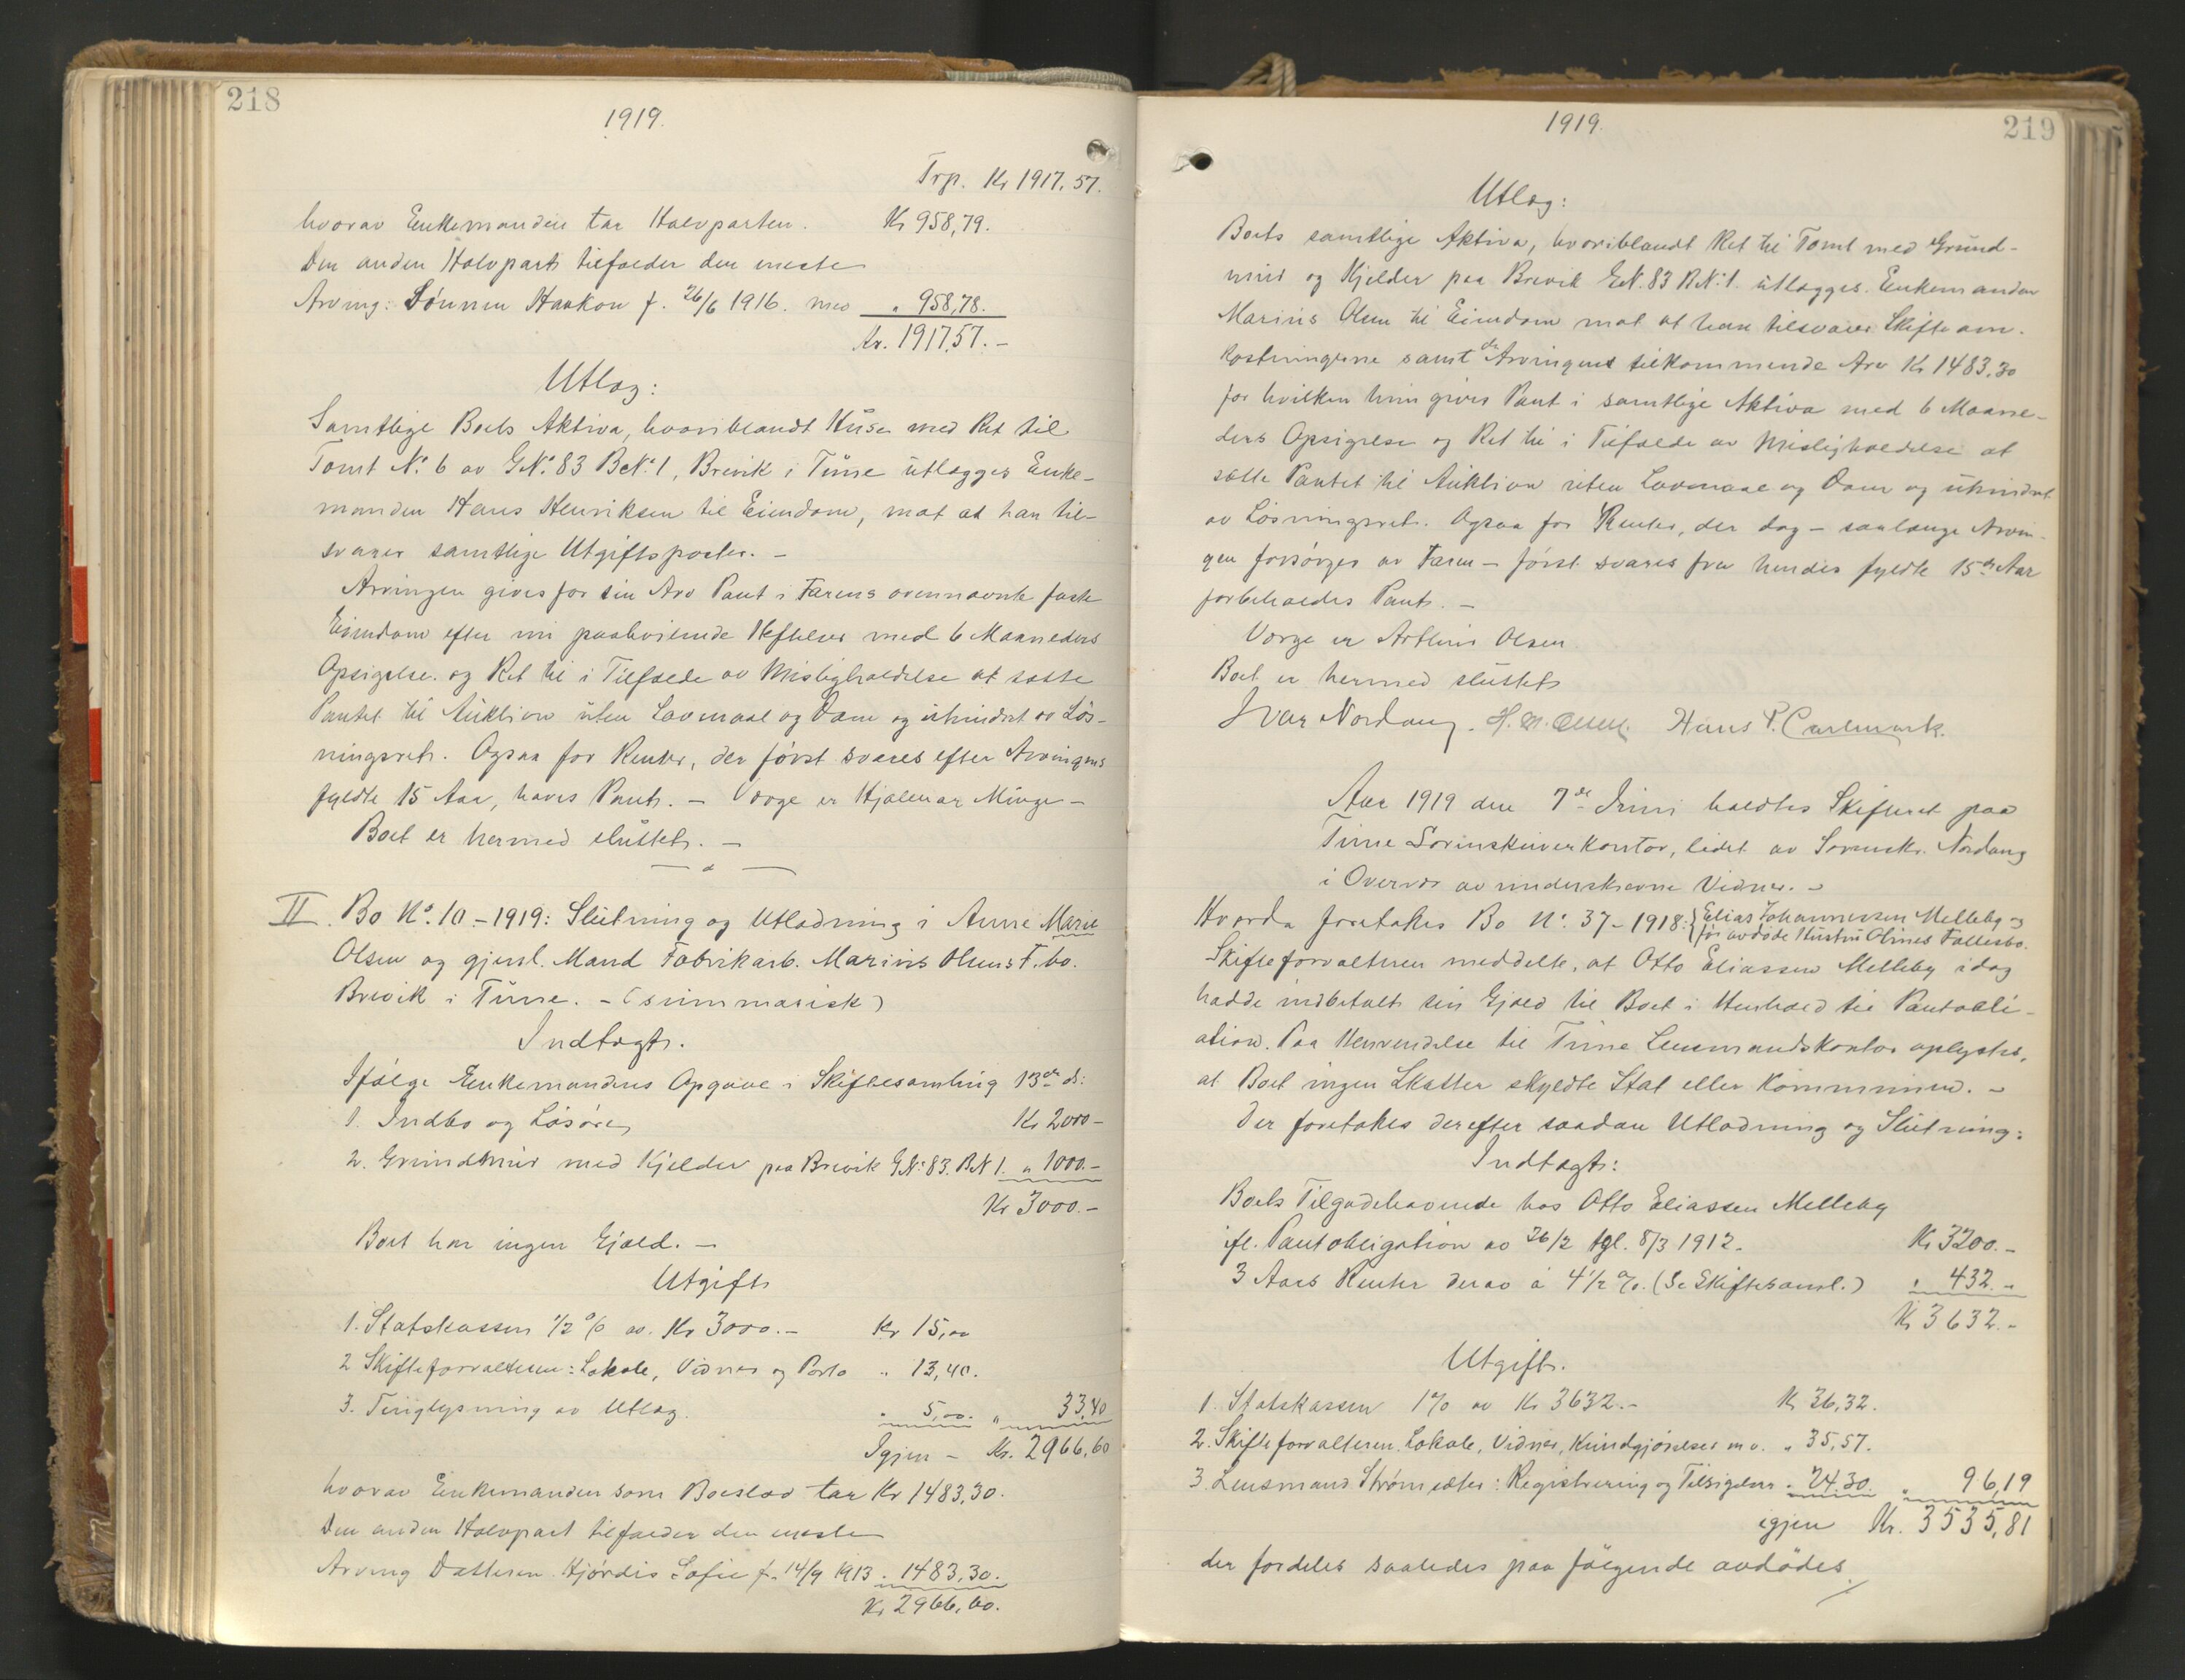 218
1919.
Trp. Kr 1917.57.
hvorav Enkemanden tar Halvparten. Kr 958,79.
Den anden Halvpart tilfalder den eneste
Arving: Sønnen Haakon f. 26/6 1916. med " 958,78.
Kr. 1917.57.-
Utlæg:
Samtlige Boets Aktiva, hvoriblandt Huse med Ret til
Tomt No. 6 av GNo. 83 BNo. 1, Brevik i Tune utlægges Enke-
manden Hans Henriksen til Eiendom, mot at han til-
svarer samtlige Utgiftsposter. -
Arvingen gives for sin Arv Pant i Farens ovennævnte faste
Eiendom efter nu paahvilende Heftelser med 6 Maaneders
Opsigelse og Ret til i Tilfælde av Misligholdelse at sætte
Pantet til Auktion uten Lovmaal og Dom og uhindret av Løs-
ningsret. Ogsaa for Renter, der først svares efter Arvingens
fyldte 15 Aar, haves Pant. - Værge er Hjalmar Minge -
Boet er hermed sluttet. -
II. Bo No. 10 - 1919: Slutning og Utlodning i Anne Marie
Olsen og gjenl. Mand Fabrikarb. Marius Olsens F.bo.
Brevik i Tune. - (summarisk)
Indtægt.
Ifølge Enkemandens Opgave i Skiftesamling 13de ds:
1. Indbo og Løsøre, Kr 2000-
2. Grundmur med Kjelder paa Brevik GNo. 83. BN 1. " 1000.-
Kr 3000.-
Boet har ingen Gjæld. -
Utgift
1. Statskassen 1/2 % av. Kr 3000.- Kr 15,00
2 Skifteforvalteren: Lokale, Vidner og Porto " 13,40.
3. Tinglysning av Utlæg. " 5,00. " 33,40
Igjen - Kr. 2966,60
hvorav Enkemanden som Boeslod tar Kr 1483,30.
Den anden Halvpart tilfalder den eneste
Arving Datteren Hjørdis Sofie f. 14/9 1913 " 1483,30.
Kr 2966,60.
219
1919.
Utlæg:
Boets samtlige Aktiva, hvoriblandt Ret til Tomt med Grund-
mur og Kjelder paa Brevik GN. 83 BN. 1. utlægges Enkemanden
Marius Olsen til Eiendom mot at han tilsvarer Skifteom-
kostningerne samt den Arvingens tilkommende Arv Kr 1483,30
for hvilken hun gives Pant i samtlige Aktiva med 6 Maane-
ders Opsigelse og Ret til i Tilfælde av Misligholdelse at
sætte Pantet til Auktion uten Lovmaal og Dom og uhindret
av Løsningsret. Ogsaa for Renter, der dog - saalænge Arvin-
gen forsørges av Faren - først svares fra hendes fyldte 15de Aar
forbeholdes Pant. -
Værge er Arthur Olsen
Boet er hermed sluttet
Ivar Nordang. H. M. Olsen. Hans P. Carlmark.
Aar 1919 den 7de Juni holdtes Skifteret paa
Tune Sorenskriverkontor, ledet av Sorenskr. Nordang
i Overvær av underskrevne Vidner. -
Hvorda foretakes Bo No. 37 - 1918: Elias Johannessen Melleby og
før avdøde Hustru Olines Fællesbo.
Skifteforvalteren meddelte, at Otto Eliassen Melleby idag
hadde indbetalt sin Gjæld til Boet i Henhold til Pantobli-
ation. Paa Henvendelse til Tune Lensmandskontor oplystes,
at Boet ingen Skatter skyldte Stat eller Kommune. -
Der foretakes derefter saadan Utlodning og Slutning:
Indtægt:
Boets Tilgodehavende hos Otto Eliassen Melleby
ifl. Pantobligation av 26/2 tgl. 8/3 1912. Kr 3200.-
3 Aars Renter derav à 4 1/2 %. (Se Skiftesaml.) " 432.-
Kr 3632.-
Utgift.
1. Statskassen 1% av Kr 3632.- Kr 36,32.
2. Skifteforvalteren. Lokale, Vidner, Kundgjørelser m v. " 35,57.
3. Lensmand Strømsæter: Registrering og Tilsigelser " 24.30. " 96,19
igjen Kr. 3535,81
der fordeles saaledes paa følgende avdødes